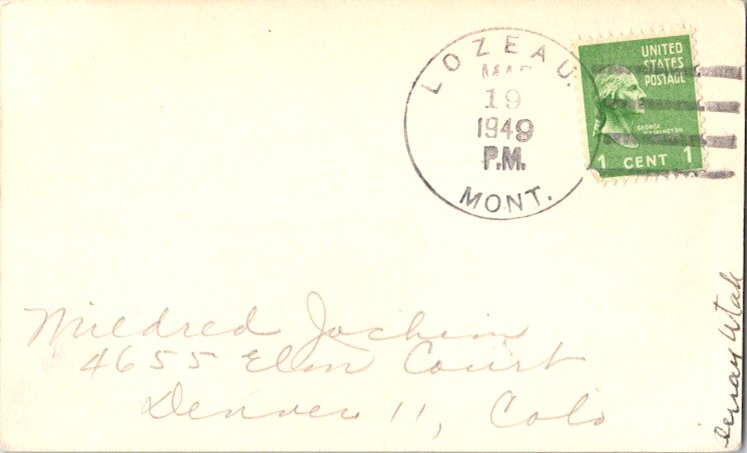 LOZEAU.
MAR
19
1949
P.M.
MONT.
UNITED
STATES
POSTAGE
GEORGE
WASHINGTON
1 CENT 1
Mildred Jochim
4655 Elm Court
Denver 11, Colo
Utah